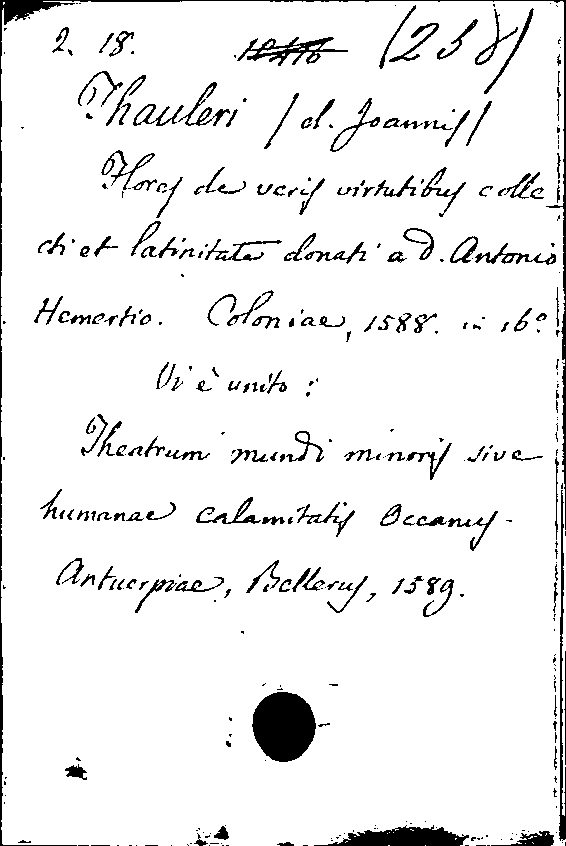 2. 18. (238)
Thauleri / d. Joannis /
Flores de veris virtutibus colle_
cti et latinitate donati a D. Antonio
Hemertio. Coloniae, 1588. in 16.º
Vi è unito:
Theatrum mundi minoris sive
humanae calamitatis Oceanus.
Antuerpiae, Bellerus, 1589.